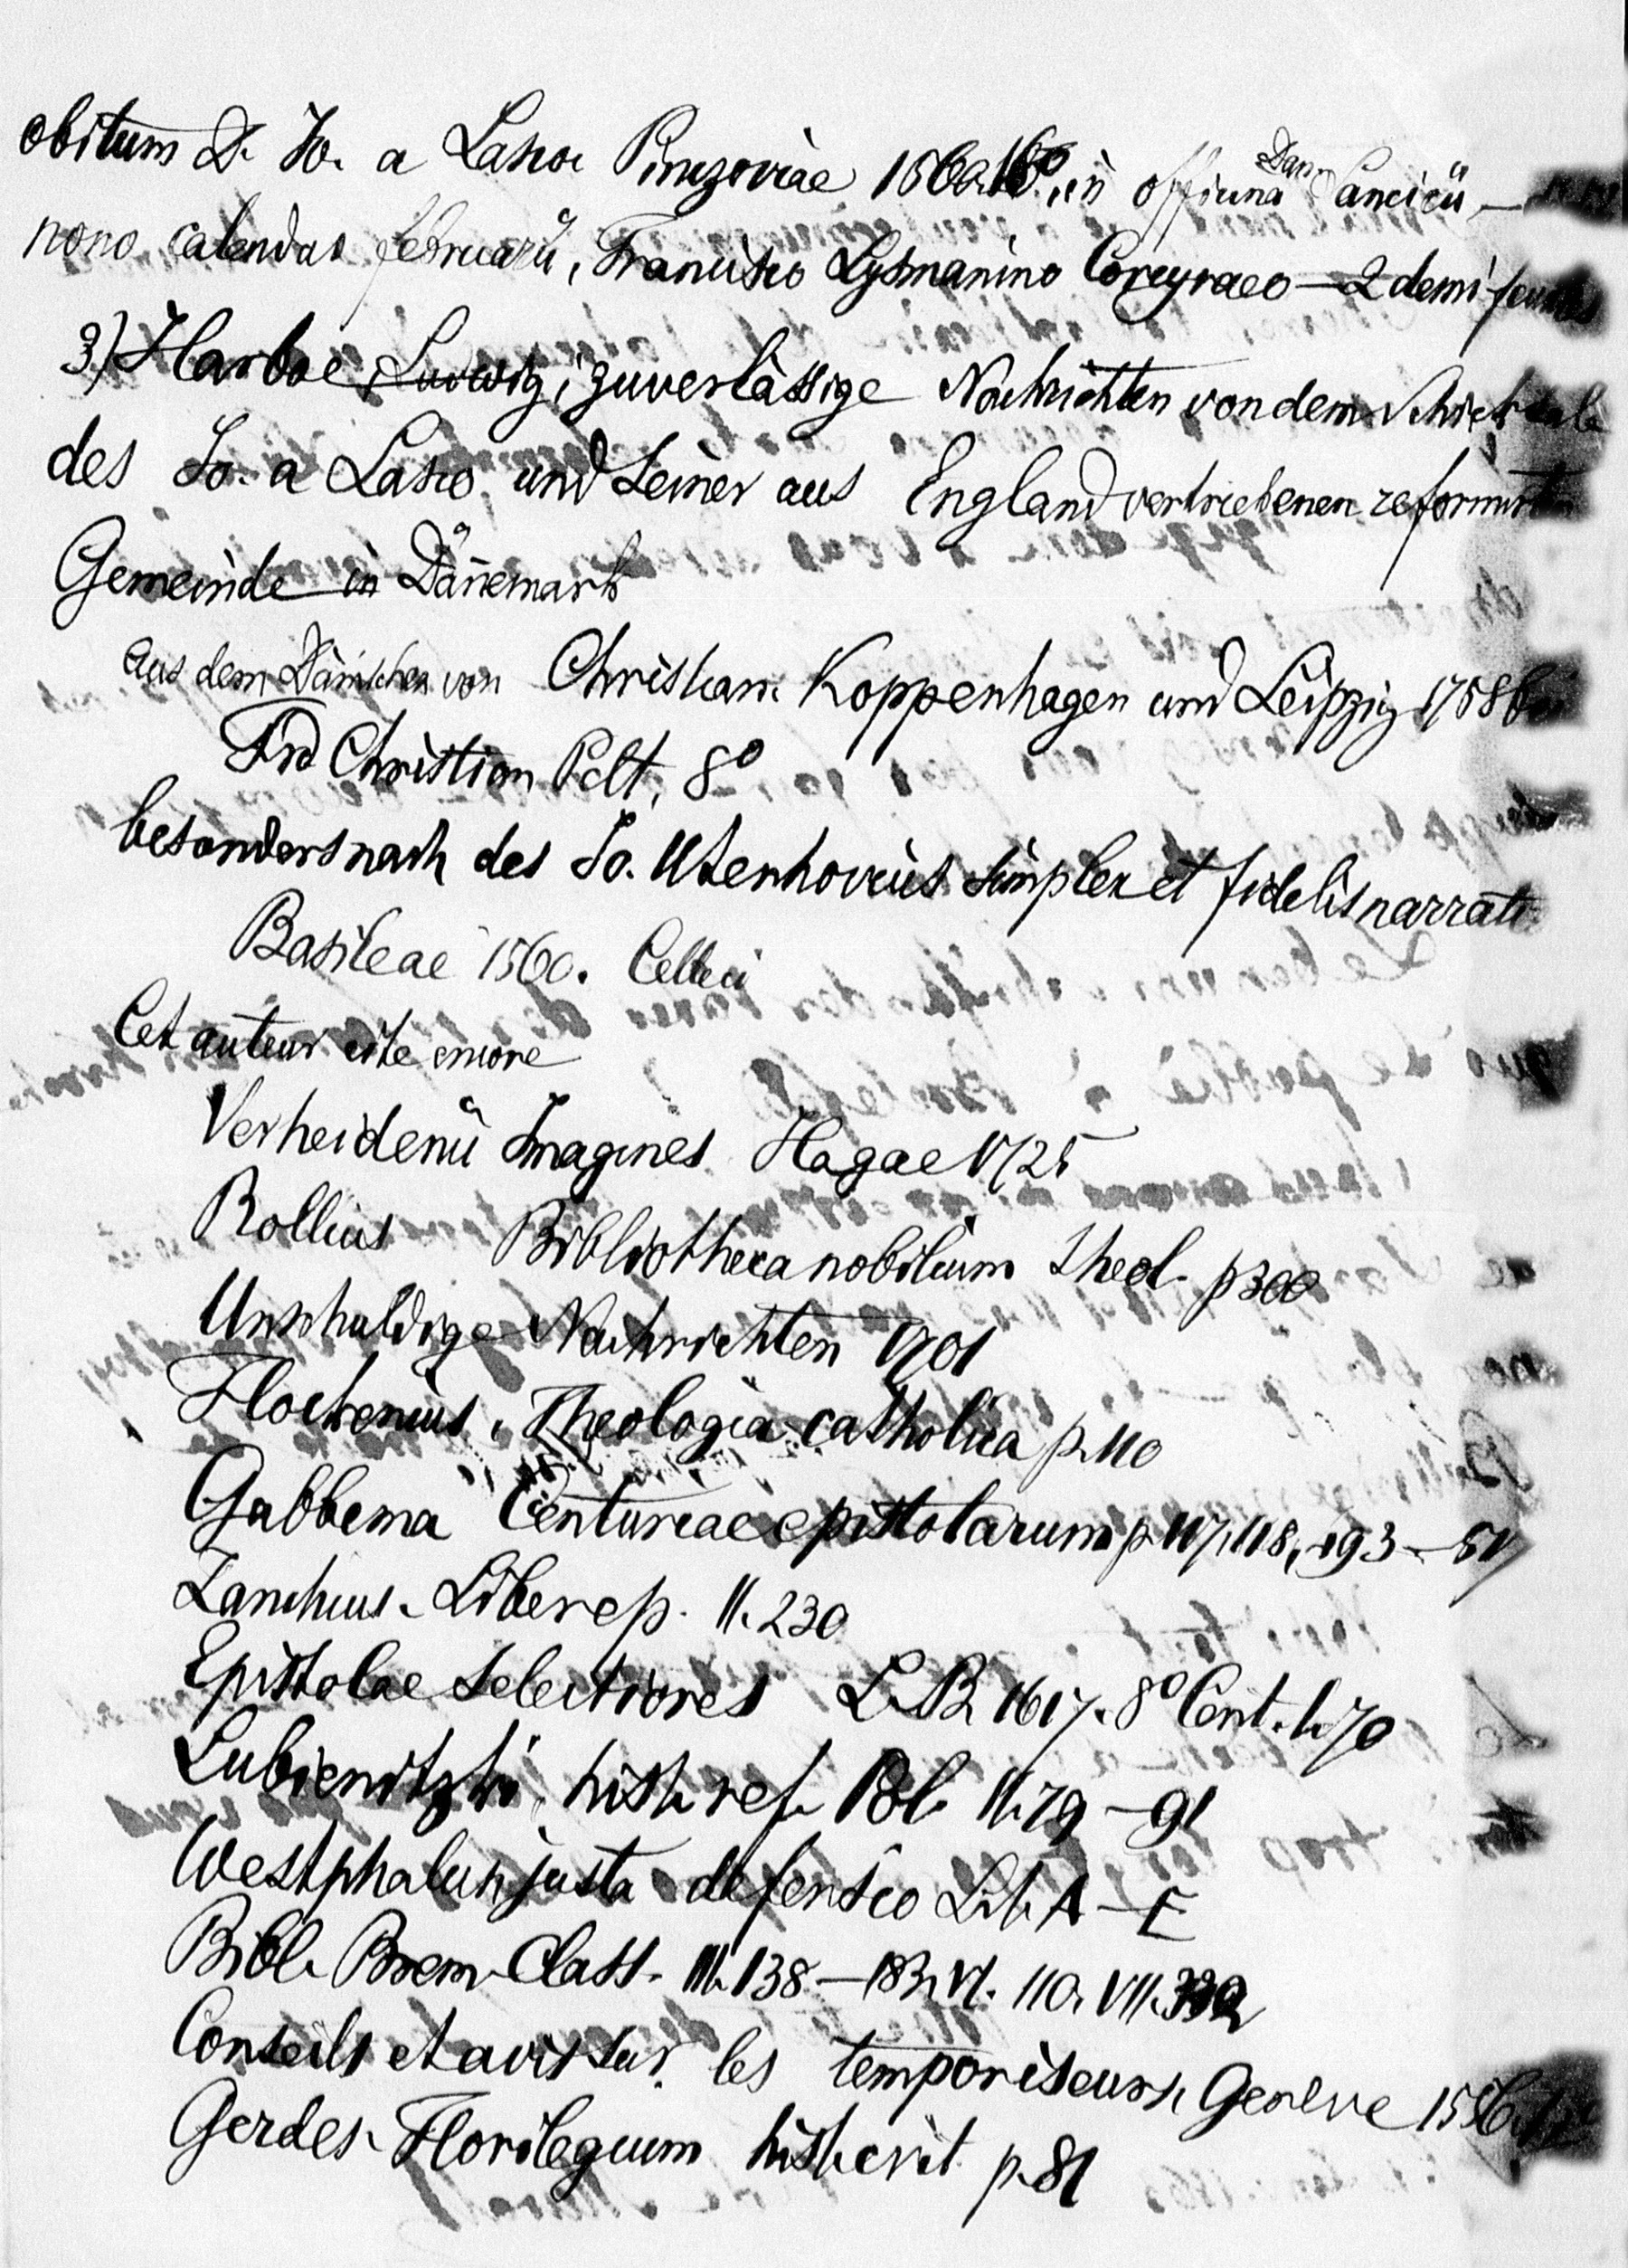 obitum D. Jo. a Lasco Pinczoviae 1560. in officina Dan. Lancicii —
nono calendas februarii, Francisco Lysmanino Corcyraeo — 2 demi feuilles
3) Harboe, Ludwig, zuverlässige Nachrichten von dem Schicksale
des Jo. a Lasco und seiner aus England vertriebenen reformirten
Gemeinde in Dänemark
aus dem Dänischen von Christian Koppenhagen und Leipzig 1758 bei
Frd Christian Pelt, 8°
besonders nach des Jo. Utenhovius simplex et fidelis narratio
Basileae 1560.
Cet auteur cite encore
Verheidenii Imagines Hagae 1725
Rollius Bibliotheca nobilium theol. p 300
Unschuldige Nachrichten 1701
Theologia catholica p. 110
Gabbema Centuriae epistolarum p 117, 118, 193 — 51
Zanchius. Liber ep. II. 230
Epistolae selectiores L. B. 1617. 8° Cent. I. 70
Lubienitzki, hist. ref. Pol. II. 79 — 91
Westphalus justa defensio Lit. A — E
Bibl. Brem. Class. III. 138. — 183, VI. 110, VII.
Conseils et avis sur les temporiseurs, Geneve
Gerdes. Florilegium hist. crit. p. 81